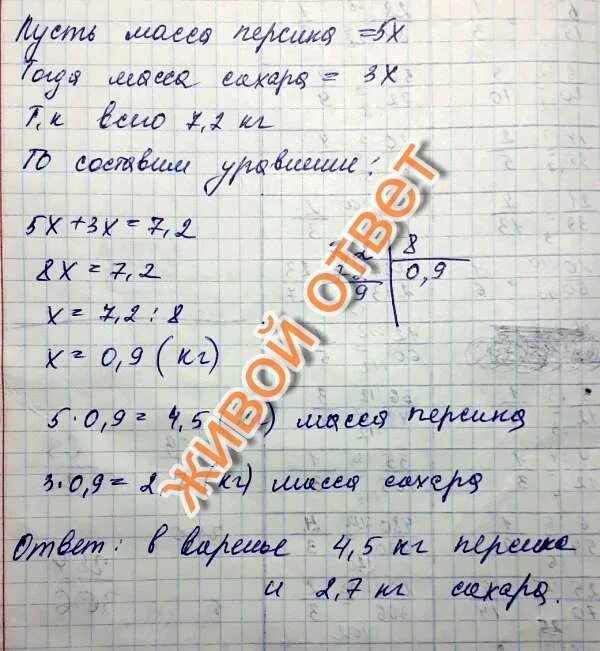 Пусть масса персика = 5х
Тогда масса сахара = 3х
Т.к всего 7,2 кг
То составим уравнение:
5х + 3х = 7,2
8х = 7,2
х = 7,2 : 8
х = 0,9 (кг)
8
0,9
5·0,9 = 4,5 ) масса персика
3·0,9 = 2, кг) масса сахара
Ответ: в варенье 4,5 кг персика
и 2,7 кг сахара.
ЖИВОЙ ОТВЕТ